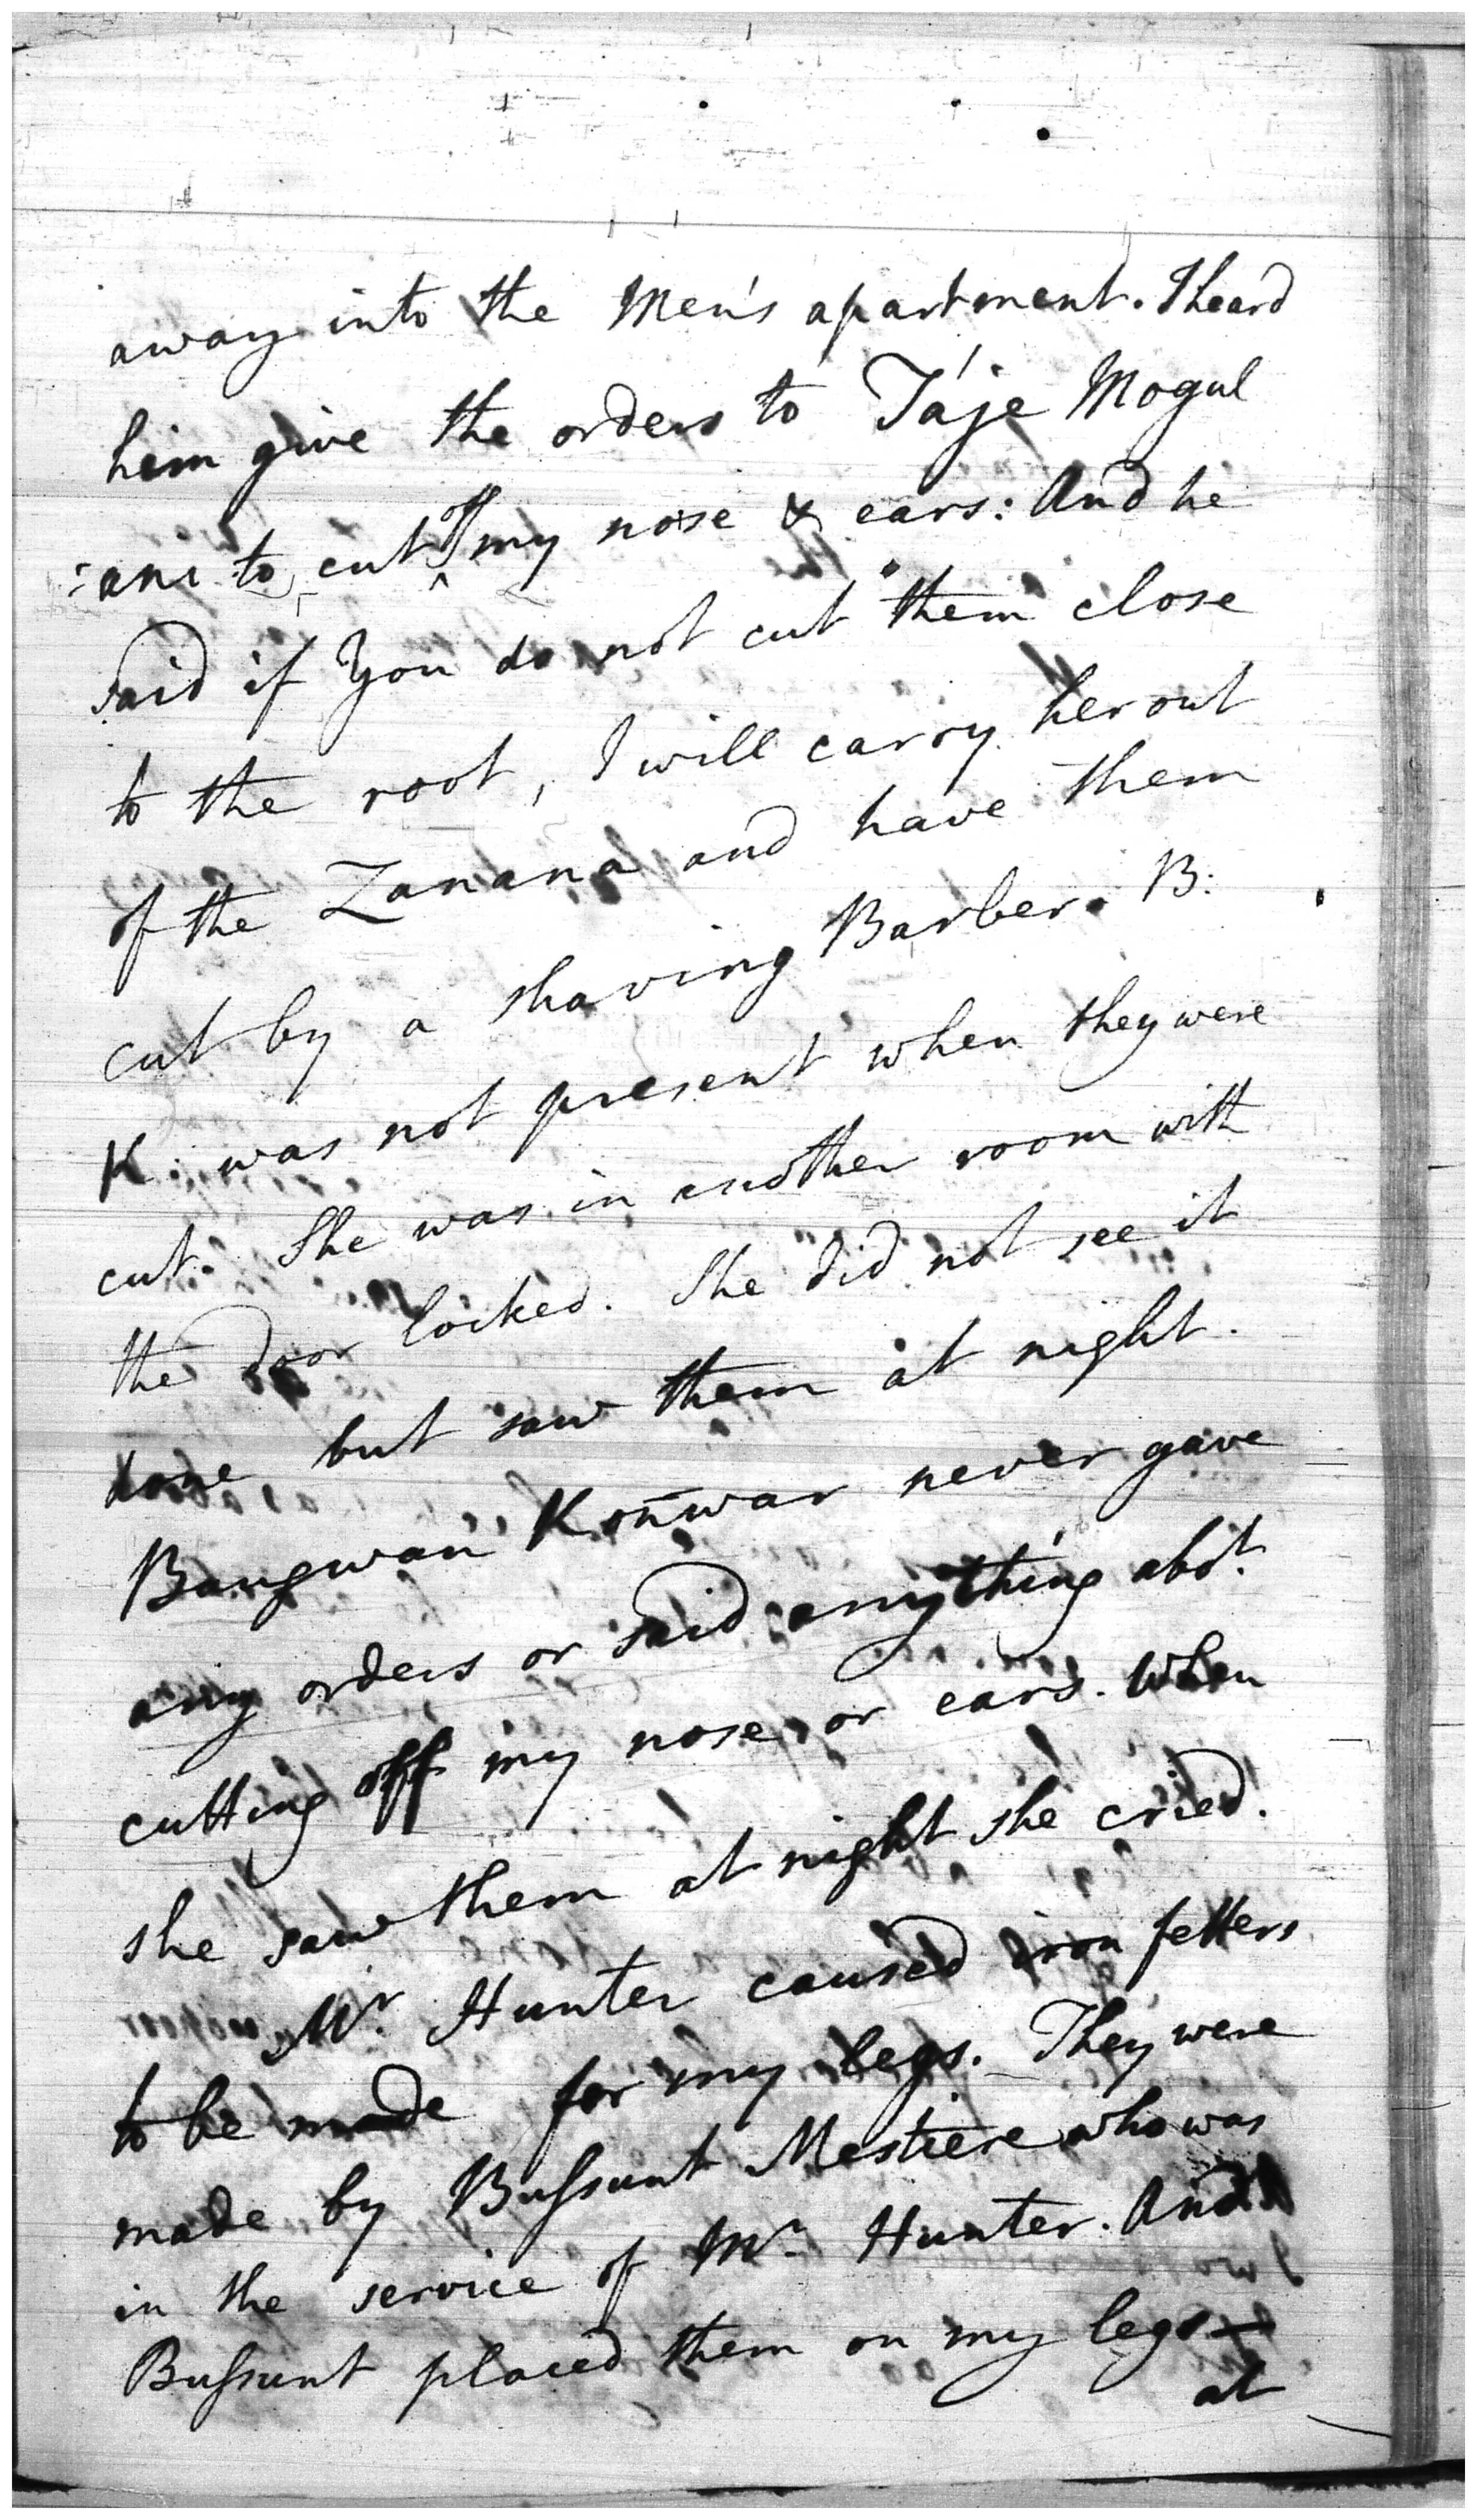 away into the Men's apartment. I heard
him give the orders to Táje Mogul
:ani to cut off my nose & ears: And he
said if You do not cut them close
to the root, I will carry her out
of the Zanana and have them
cut by a shaving Barber. B:
K: was not present when they were
cut. She was in another room with
the door locked. She did not see it
done, but saw them at night.
Bangwan Konwar never gave
any orders or said anything abot.
cutting off my nose or ears. When
she saw them at night she cried.
Mr. Hunter caused iron fetters
to be made for my legs. They were
made by Bussunt Mestiere who was
in the service of Mr. Hunter. And
Bussunt placed them on my legs—
at